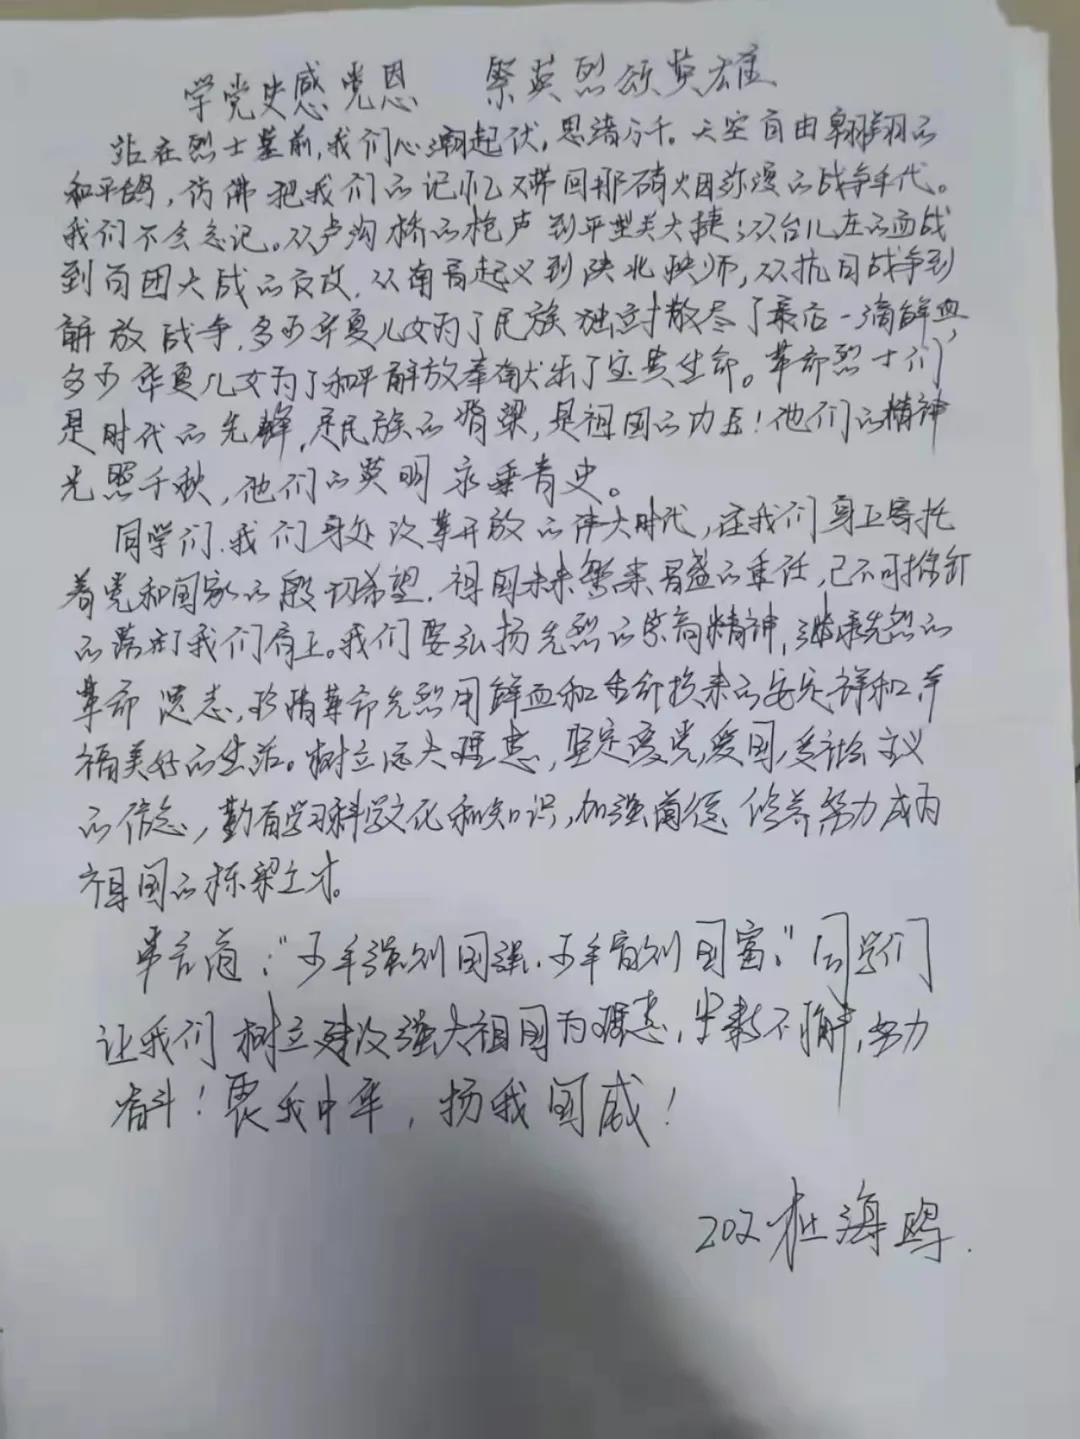 学党史感党恩 祭英烈颂英雄
站在烈士墓前,我们心潮起伏,思绪万千。天空自由翱翔的
和平鸽,仿佛把我们的记忆又带回那硝烟弥漫的战争年代。
我们不会忘记。从卢沟桥的枪声到平型关大捷;从台儿庄的血战
到百团大战的反攻,从南昌起义到陕北,从抗日战争到
解放战争,多少华夏儿女为了民族独立尽了最后一滴鲜血,
多少华夏儿女为了和平解放奉献出了宝贵生命。革命烈士们
是时代的先锋,是民族的脊梁,是祖国的功臣!他们的精神
光照千秋,他们的英明永垂青史。
同学们,我们身处改革开放的伟大时代,在我们身上寄托
着党和国家的殷切希望,祖国未来繁荣昌盛的重任,已不可推卸
的落到了我们肩上。我们要弘扬先烈的崇高精神,继承先烈的
革命遗志,珍惜革命先烈用鲜血和生命换来的安定祥和、幸
福美好的生活。树立远大理想,坚定爱党,爱国,爱社会主义
的信念,勤奋学习科学文化和知识,加强道德修养努力成为
祖国的栋梁之才。
常言道:“少年强则国强,少年富则国富。”同学们
让我们树立建设强大祖国为理想,坚持不懈,努力
奋斗!展我中华,扬我国威!
202 杜海鸥.